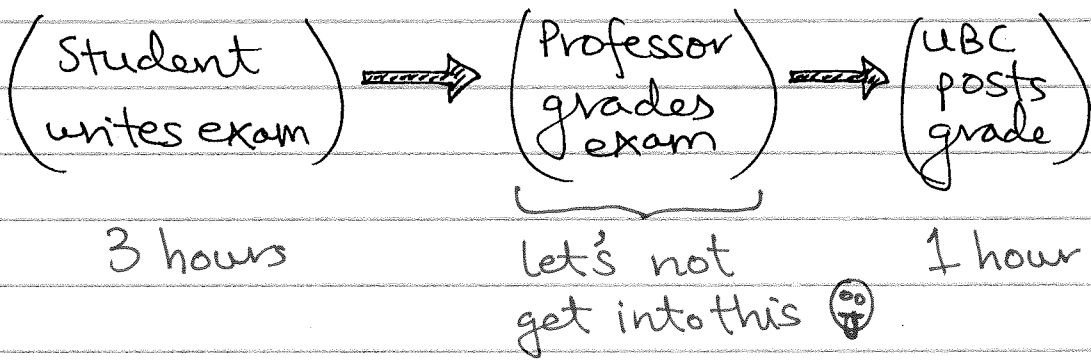 Student
writes exam
Professor
grades
exam
UBC
posts
grade
3 hours
let's not
get into this
1 hour